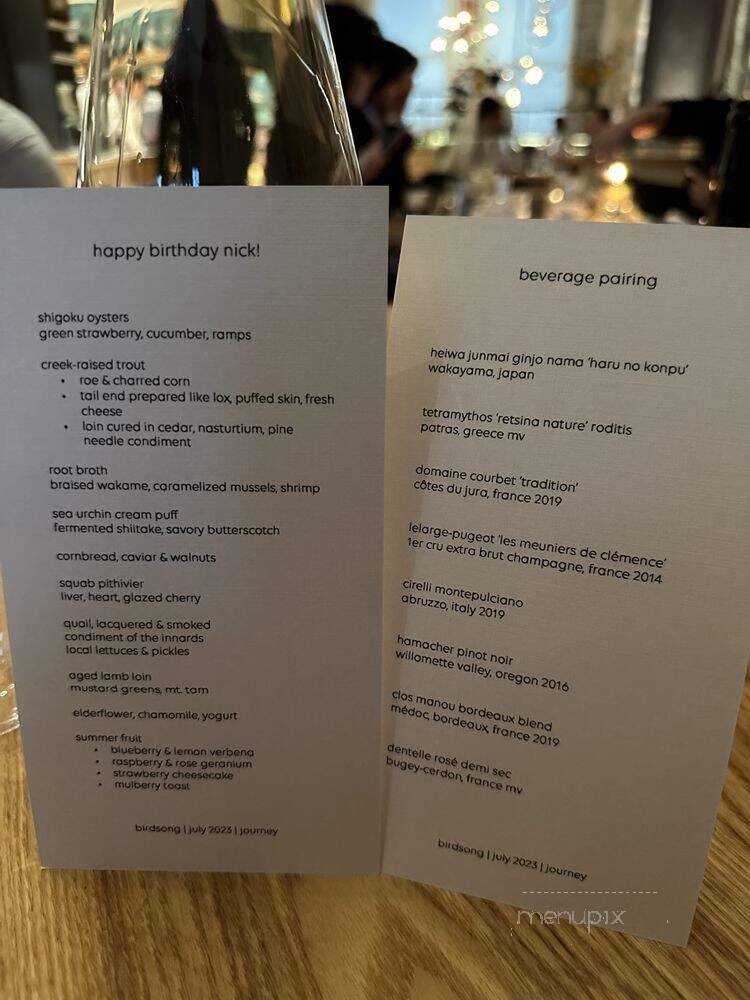 happy birthday nick!
shigoku oysters
green strawberry, cucumber, ramps
creek-raised trout
• roe & charred corn
• tail end prepared like lox, puffed skin, fresh
cheese
• loin cured in cedar, nasturtium, pine
needle condiment
root broth
braised wakame, caramelized mussels, shrimp
sea urchin cream puff
fermented shiitake, savory butterscotch
cornbread, caviar & walnuts
squab pithivier
liver, heart, glazed cherry
quail, lacquered & smoked
condiment of the innards
local lettuces & pickles
aged lamb loin
mustard greens, mt. tam
elderflower, chamomile, yogurt
summer fruit
• blueberry & lemon verbena
• raspberry & rose geranium
• strawberry cheesecake
• mulberry toast
birdsong | july 2023 | journey
beverage pairing
heiwa junmai ginjo nama 'haru no konpu'
wakayama, japan
tetramythos 'retsina nature' roditis
patras, greece mv
domaine courbet 'tradition'
côtes du jura, france 2019
lelarge-pugeot 'les meuniers de clémence'
1er cru extra brut champagne, france 2014
cirelli montepulciano
abruzzo, italy 2019
hamacher pinot noir
willamette valley, oregon 2016
clos manou bordeaux blend
médoc, bordeaux, france 2019
dentelle rosé demi sec
bugey-cerdon, france mv
birdsong | july 2023 | journey
menupix